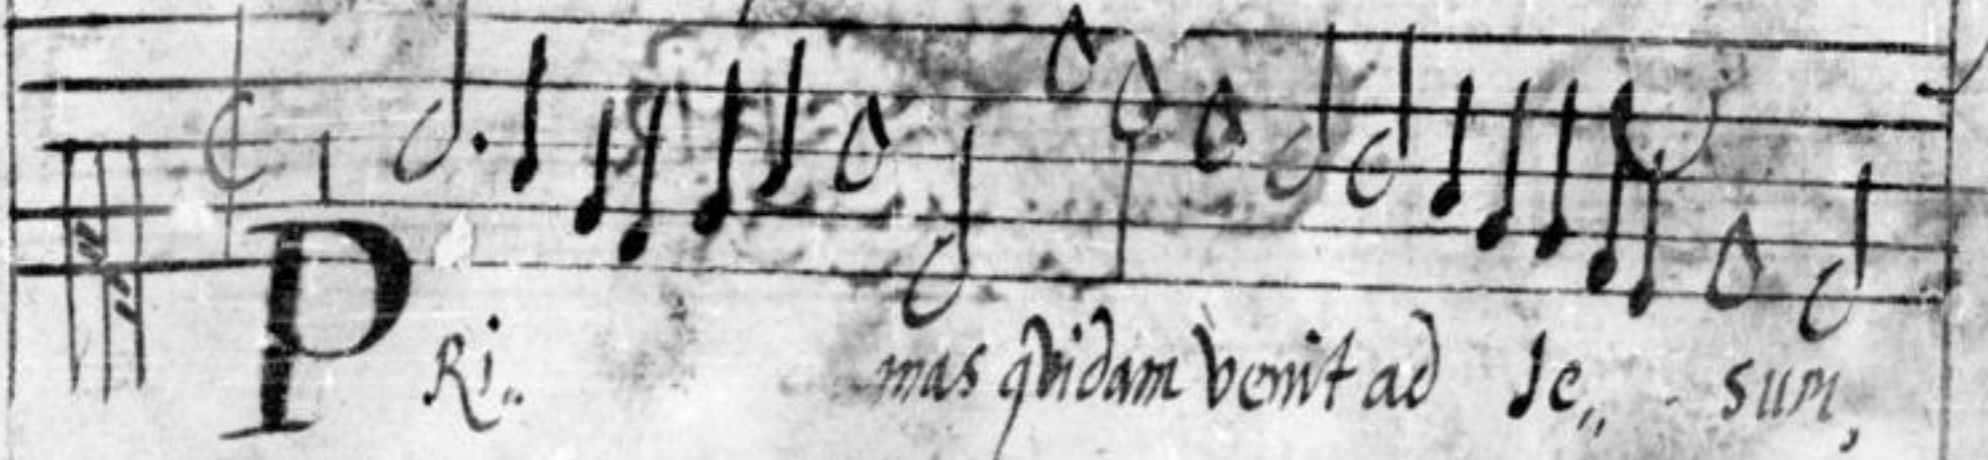 PRi.. mas quidam venit ad Je,, - sum,